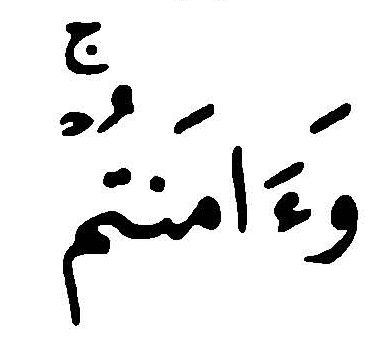 وَءَامَنتُمۡۚ